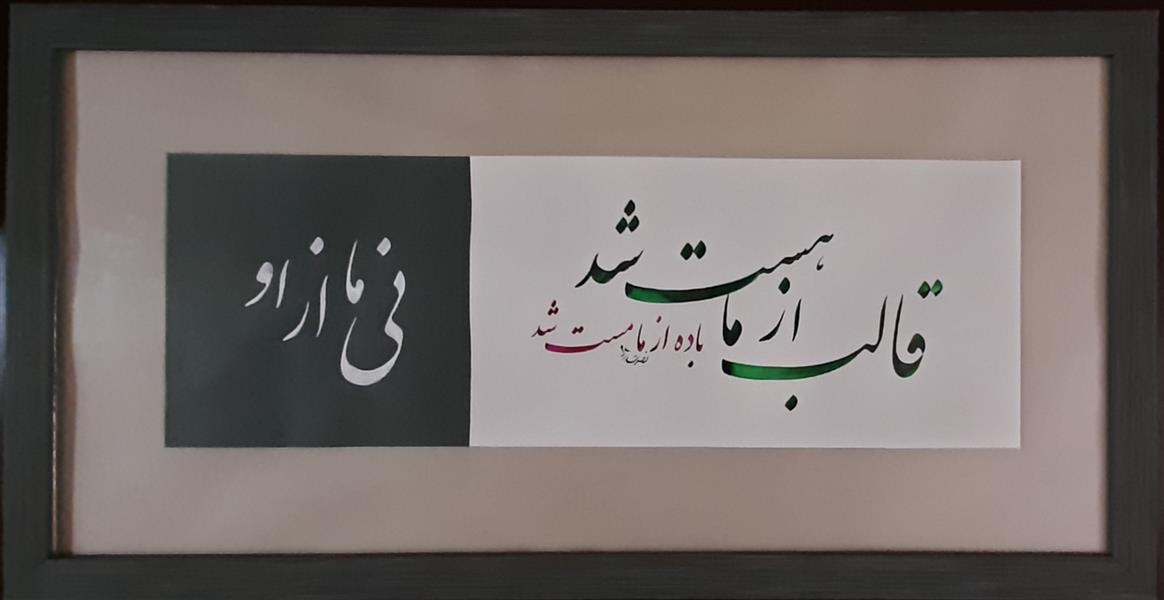 قالب از ما هست شد
نی ما از او
باده از ما مست شد